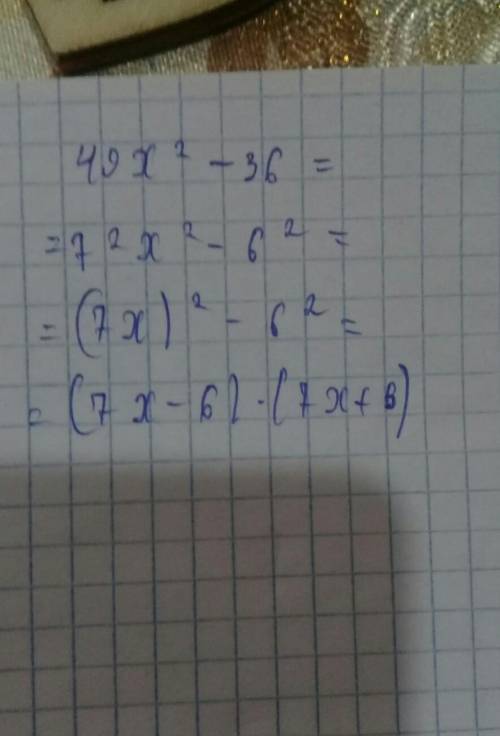 49x² - 36 =
= 7²x² - 6² =
= (7x)² - 6² =
= (7x - 6) · (7x + 6)